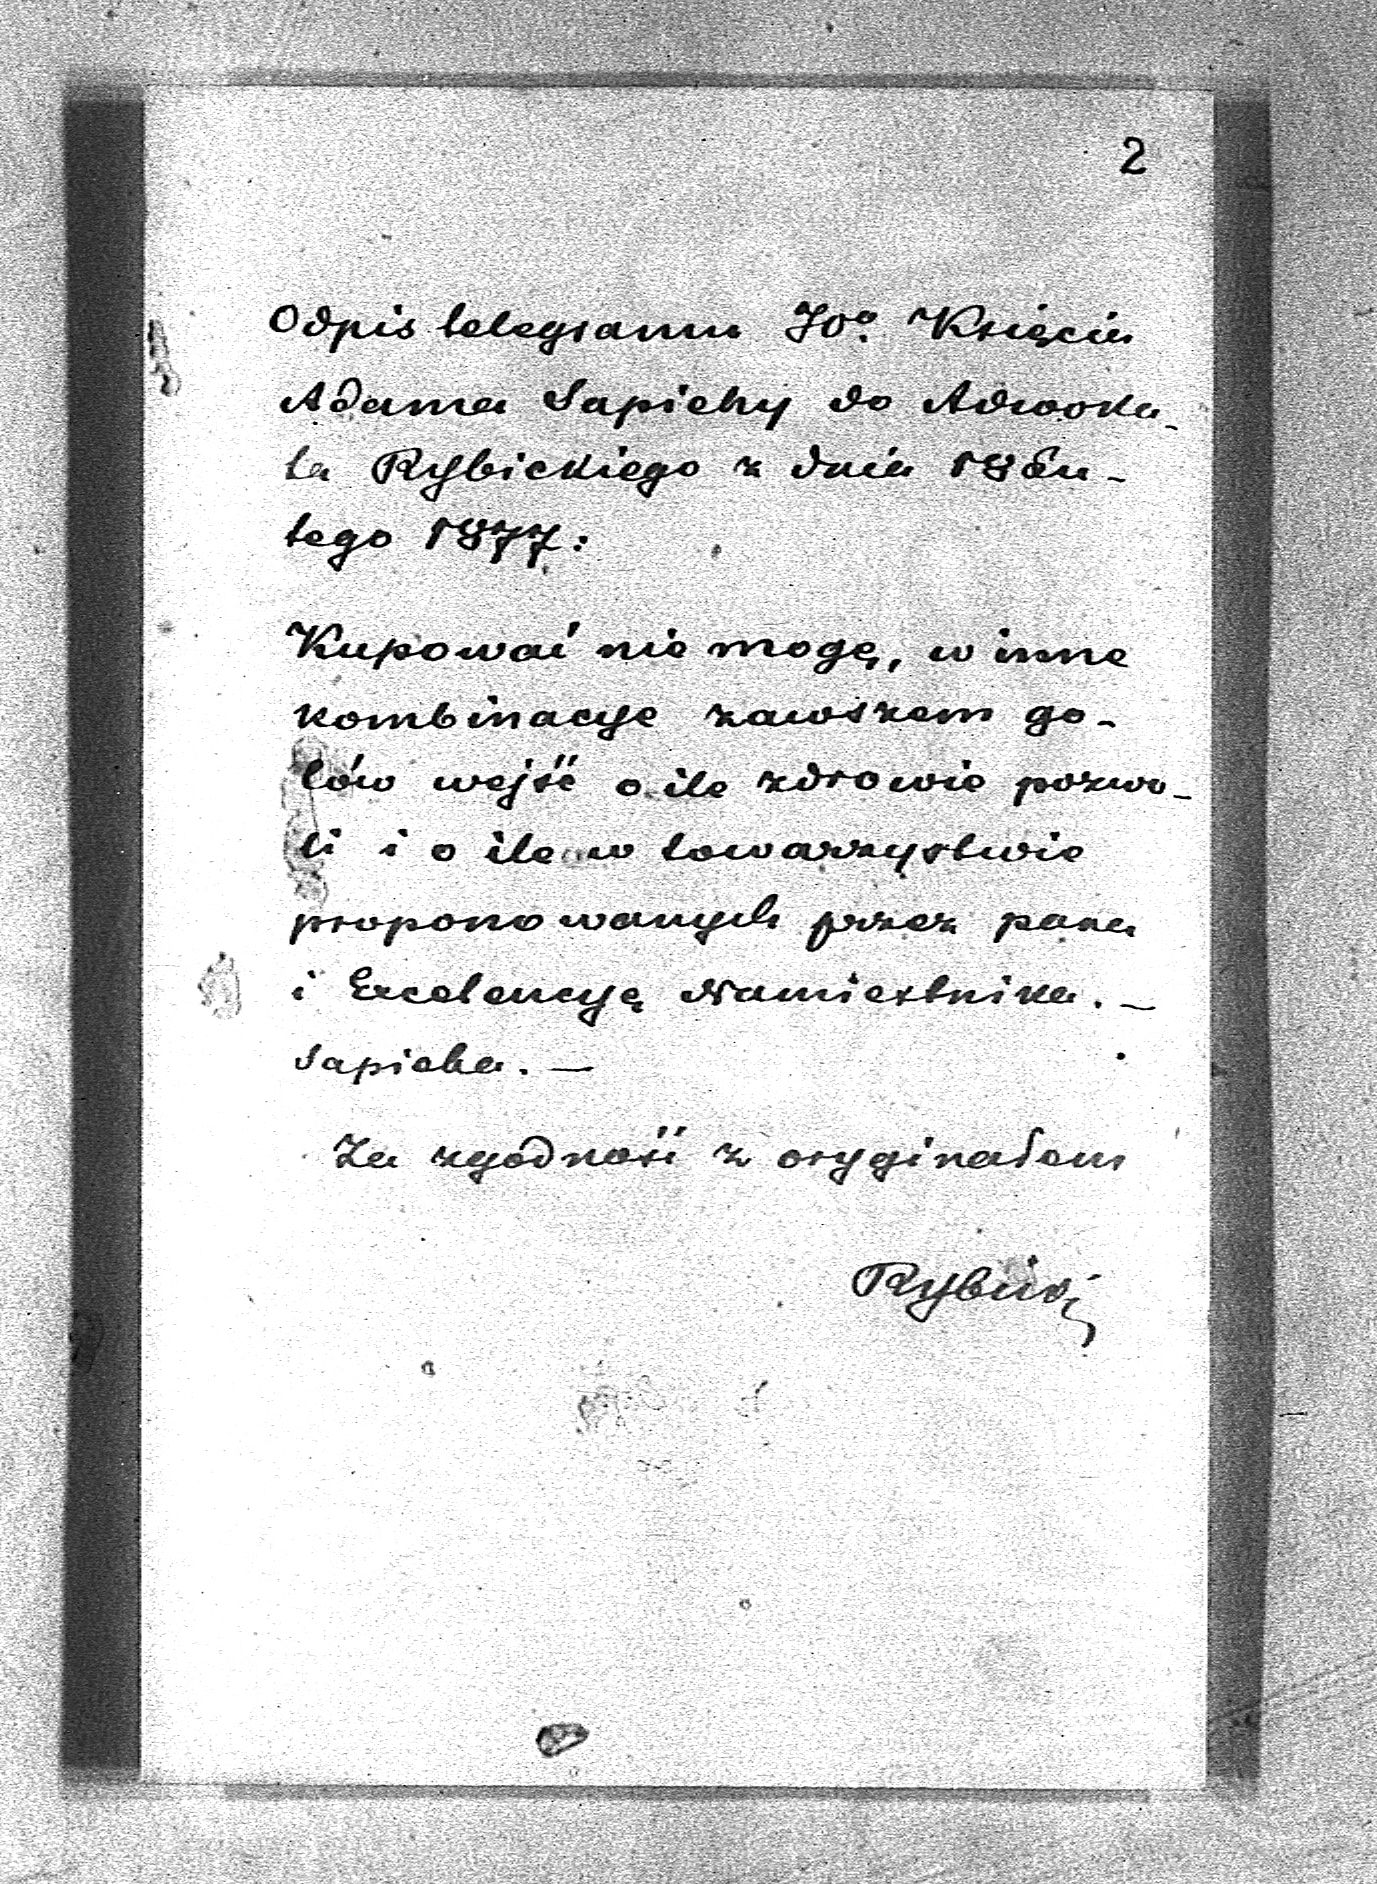 2
Odpis telegramu JO. Księcia
Adama Sapiehy do Adwoka-
ta Rybickiego z dnia 18 Lu-
tego 1877:
Kupować nie mogę, w inne
kombinacye zawszem go-
tów wejść o ile zdrowie pozwo-
li i o ile w towarzystwie
proponowanych przez pana
i Excelencyę Namiestnika. —
Sapieha. —
Za zgodność z oryginałem
Rybicki